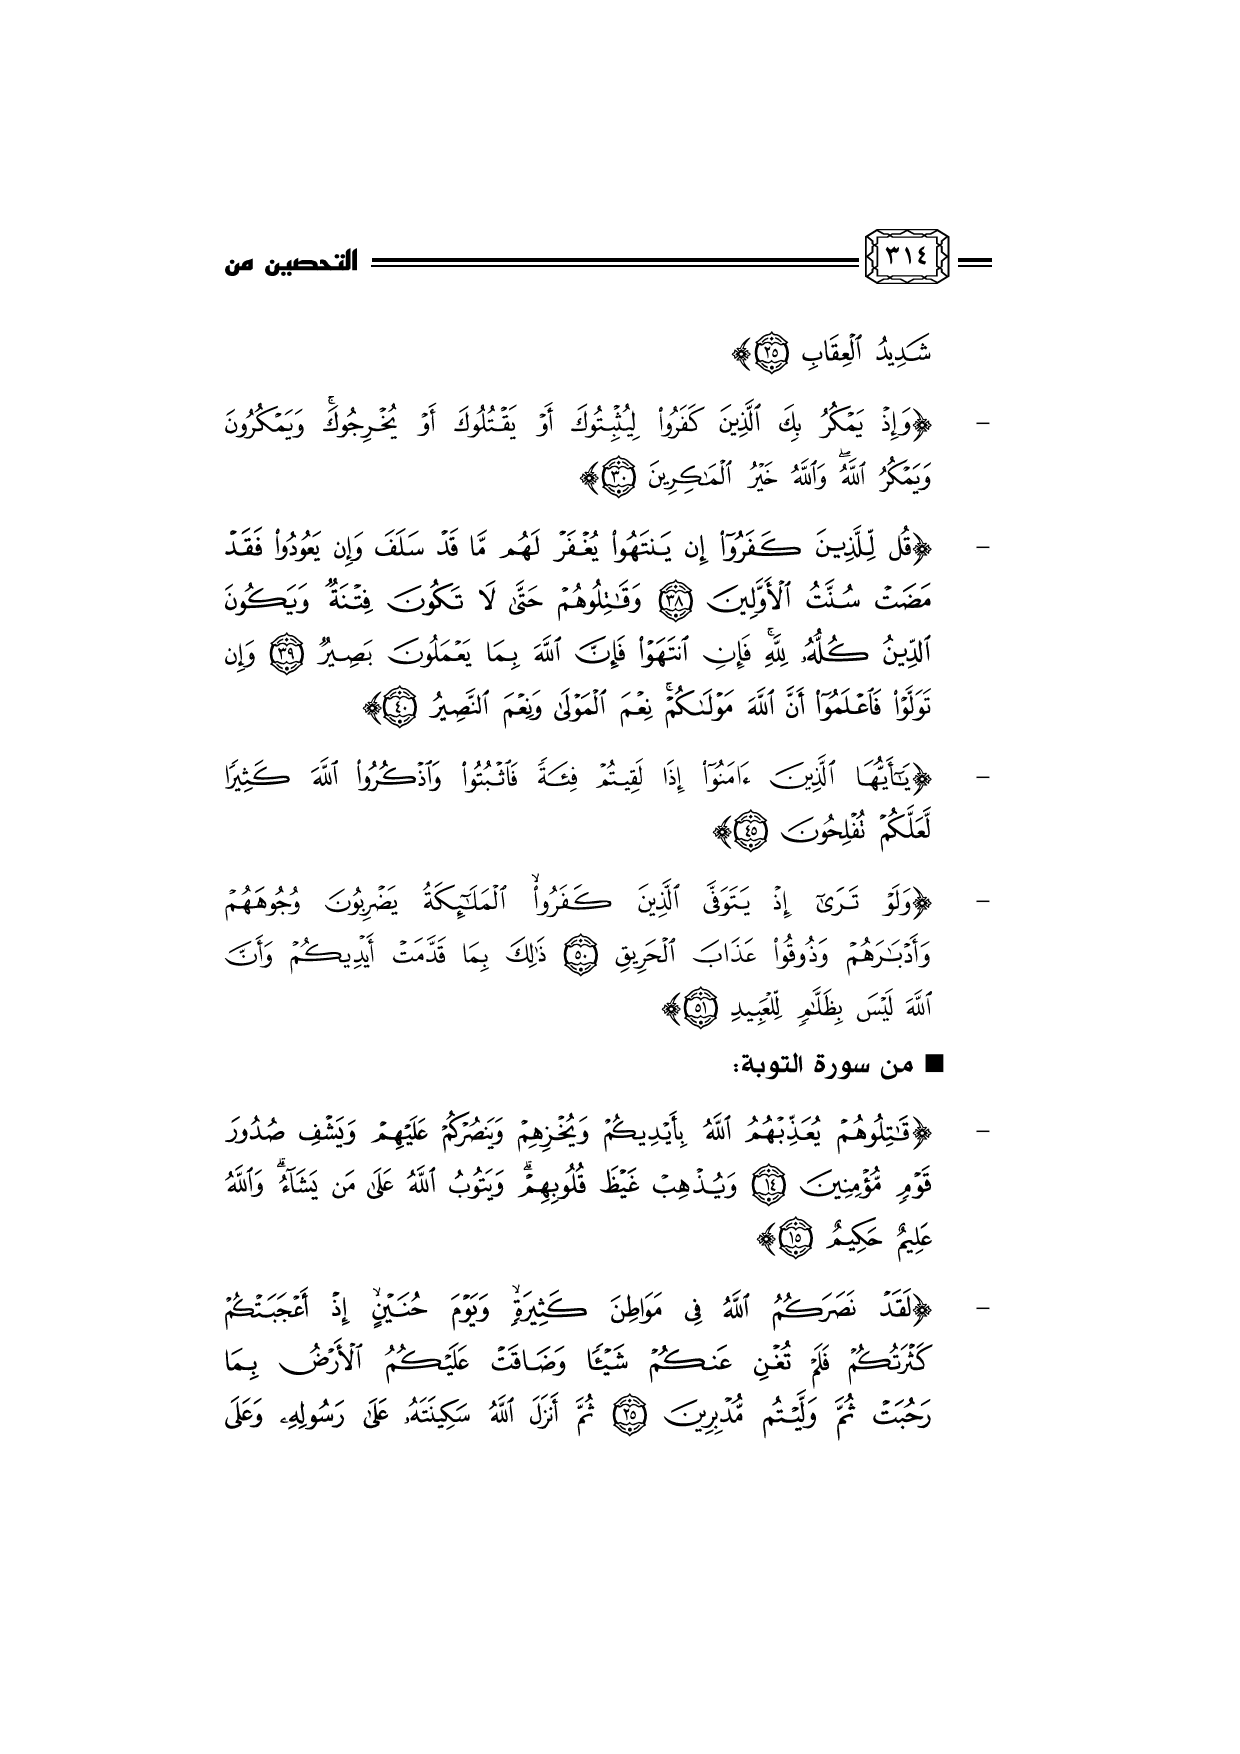 ٣١٤ التحصين من
شَدِيدُ ٱلْعِقَابِ ﴿٢٥﴾
– ﴿وَإِذْ يَمْكُرُ بِكَ ٱلَّذِينَ كَفَرُوا۟ لِيُثْبِتُوكَ أَوْ يَقْتُلُوكَ أَوْ يُخْرِجُوكَ ۚ وَيَمْكُرُونَ
وَيَمْكُرُ ٱللَّهُ ۖ وَٱللَّهُ خَيْرُ ٱلْمَـٰكِرِينَ ٣٠﴾
– ﴿قُل لِّلَّذِينَ كَفَرُوٓا۟ إِن يَنتَهُوا۟ يُغْفَرْ لَهُم مَّا قَدْ سَلَفَ وَإِن يَعُودُوا۟ فَقَدْ
مَضَتْ سُنَّتُ ٱلْأَوَّلِينَ ٣٨ وَقَـٰتِلُوهُمْ حَتَّىٰ لَا تَكُونَ فِتْنَةٌ وَيَكُونَ
ٱلدِّينُ كُلُّهُۥ لِلَّهِ ۚ فَإِنِ ٱنتَهَوْا۟ فَإِنَّ ٱللَّهَ بِمَا يَعْمَلُونَ بَصِيرٌ ٣٩ وَإِن
تَوَلَّوْا۟ فَٱعْلَمُوٓا۟ أَنَّ ٱللَّهَ مَوْلَىٰكُمْ ۚ نِعْمَ ٱلْمَوْلَىٰ وَنِعْمَ ٱلنَّصِيرُ ٤٠﴾
– ﴿يَـٰٓأَيُّهَا ٱلَّذِينَ ءَامَنُوٓا۟ إِذَا لَقِيتُمْ فِئَةً فَٱثْبُتُوا۟ وَٱذْكُرُوا۟ ٱللَّهَ كَثِيرًا
لَّعَلَّكُمْ تُفْلِحُونَ ٤٥﴾
– ﴿وَلَوْ تَرَىٰٓ إِذْ يَتَوَفَّى ٱلَّذِينَ كَفَرُوا۟ ۙ ٱلْمَلَـٰٓئِكَةُ يَضْرِبُونَ وُجُوهَهُمْ
وَأَدْبَـٰرَهُمْ وَذُوقُوا۟ عَذَابَ ٱلْحَرِيقِ ٥٠ ذَٰلِكَ بِمَا قَدَّمَتْ أَيْدِيكُمْ وَأَنَّ
ٱللَّهَ لَيْسَ بِظَلَّـٰمٍ لِّلْعَبِيدِ ٥١﴾
■ من سورة التوبة:
– ﴿قَـٰتِلُوهُمْ يُعَذِّبْهُمُ ٱللَّهُ بِأَيْدِيكُمْ وَيُخْزِهِمْ وَيَنصُرْكُمْ عَلَيْهِمْ وَيَشْفِ صُدُورَ
قَوْمٍ مُّؤْمِنِينَ ١٤ وَيُذْهِبْ غَيْظَ قُلُوبِهِمْ ۗ وَيَتُوبُ ٱللَّهُ عَلَىٰ مَن يَشَآءُ ۗ وَٱللَّهُ
عَلِيمٌ حَكِيمٌ ١٥﴾
– ﴿لَقَدْ نَصَرَكُمُ ٱللَّهُ فِى مَوَاطِنَ كَثِيرَةٍ ۙ وَيَوْمَ حُنَيْنٍ ۙ إِذْ أَعْجَبَتْكُمْ
كَثْرَتُكُمْ فَلَمْ تُغْنِ عَنكُمْ شَيْـًٔا وَضَاقَتْ عَلَيْكُمُ ٱلْأَرْضُ بِمَا
رَحُبَتْ ثُمَّ وَلَّيْتُم مُّدْبِرِينَ ٢٥ ثُمَّ أَنزَلَ ٱللَّهُ سَكِينَتَهُۥ عَلَىٰ رَسُولِهِۦ وَعَلَى